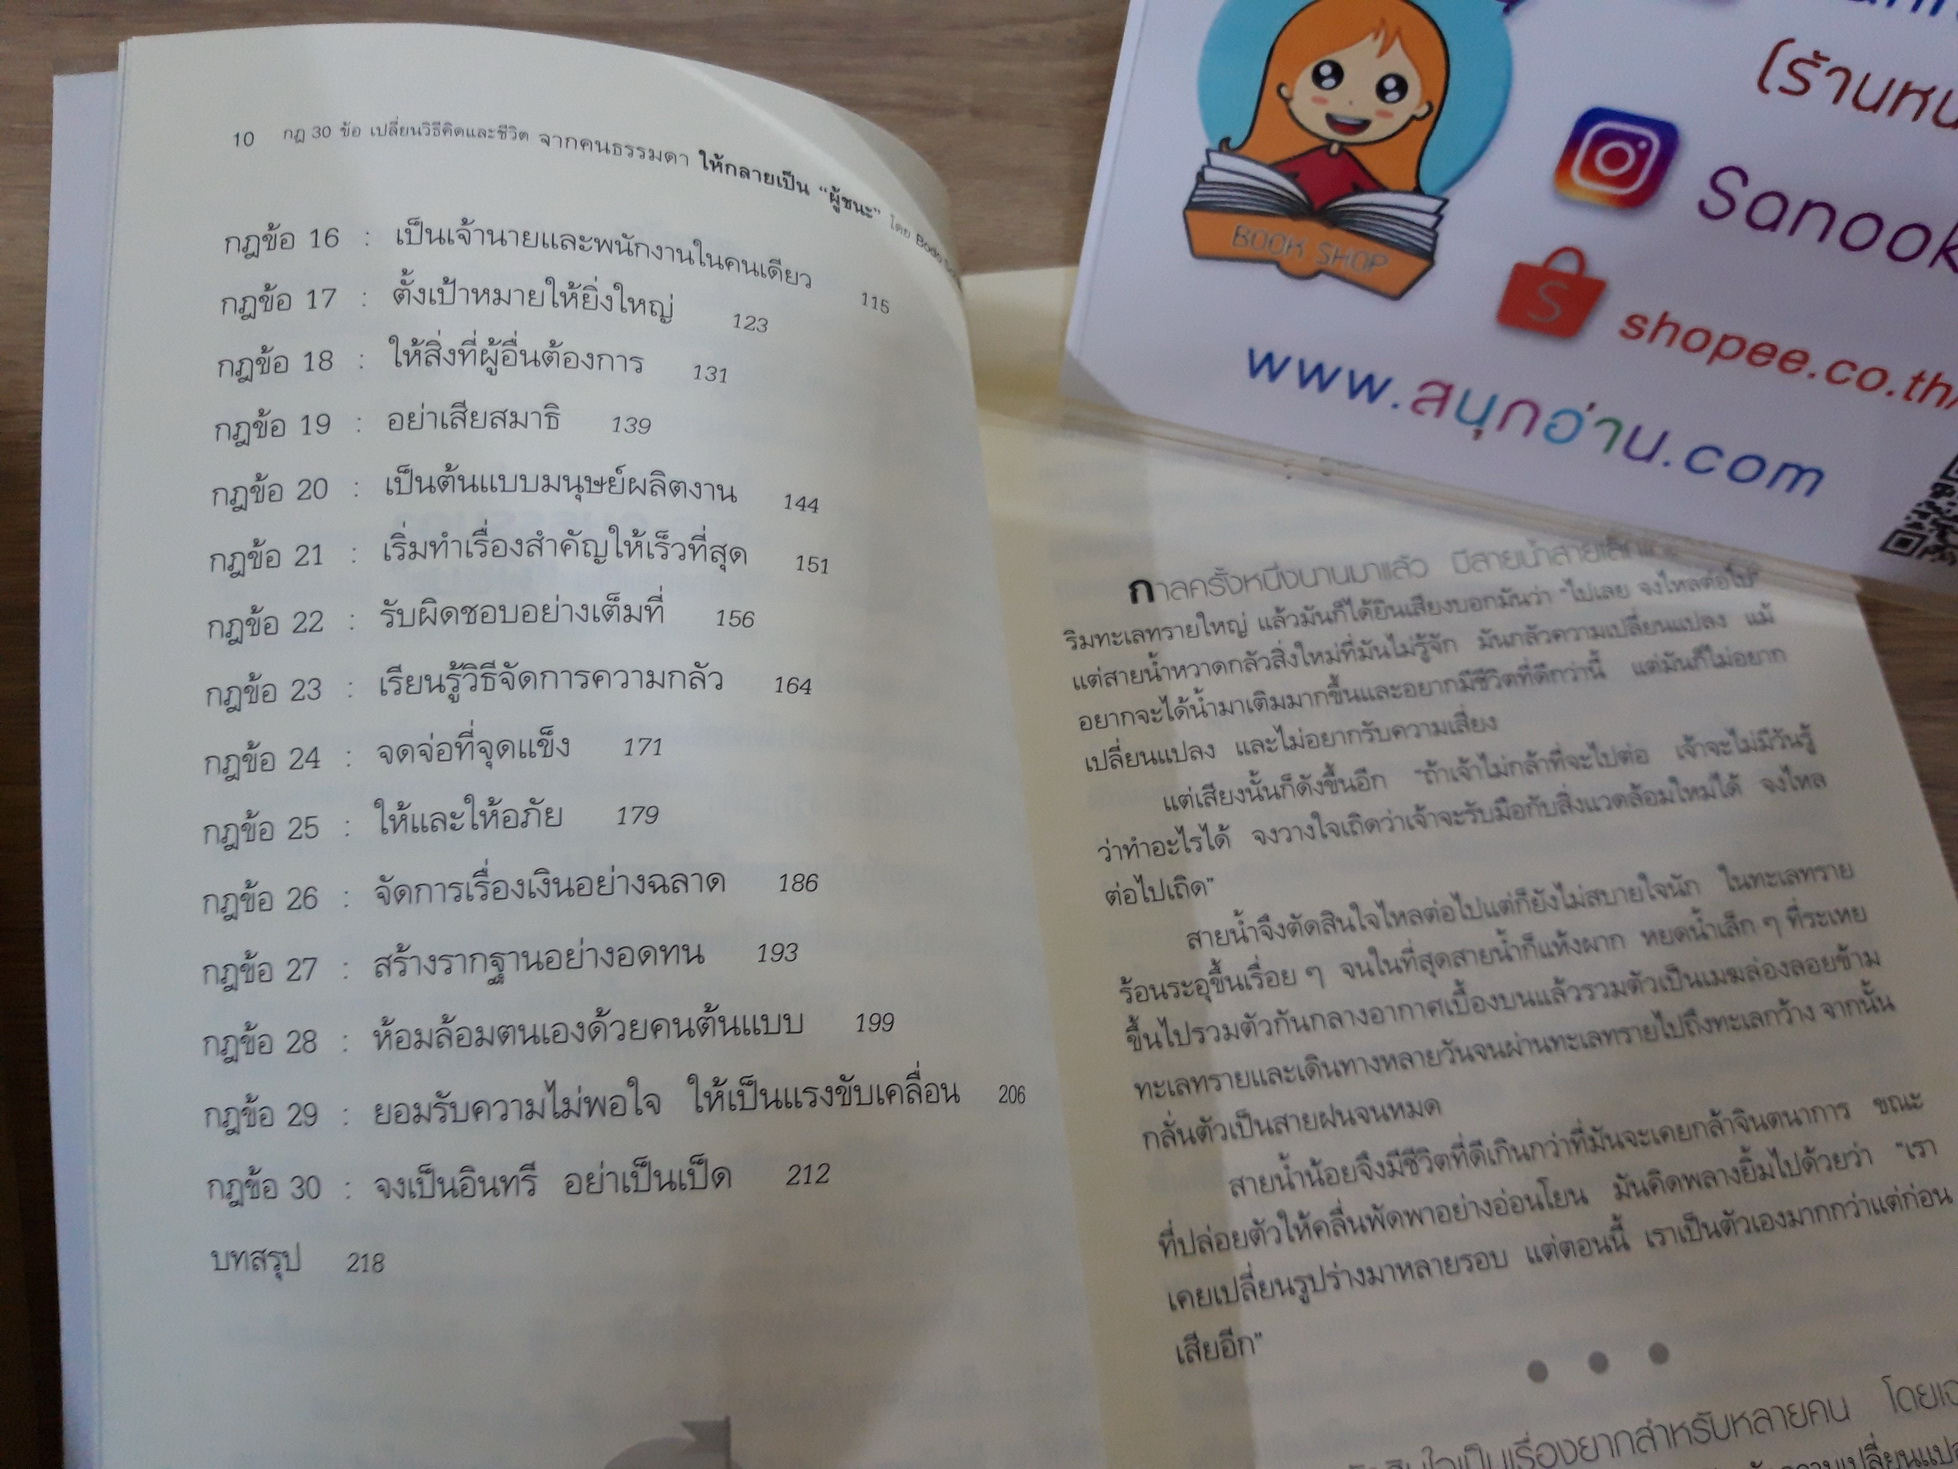 10 กฎ 30 ข้อ เปลี่ยนวิธีคิดและชีวิต จากคนธรรมดา ให้กลายเป็น "ผู้ชนะ" โดย Bodo
กฎข้อ 16 : เป็นเจ้านายและพนักงานในคนเดียว 115
กฎข้อ 17 : ตั้งเป้าหมายให้ยิ่งใหญ่ 123
กฎข้อ 18 : ให้สิ่งที่ผู้อื่นต้องการ 131
กฎข้อ 19 : อย่าเสียสมาธิ 139
กฎข้อ 20 : เป็นต้นแบบมนุษย์ผลิตงาน 144
กฎข้อ 21 : เริ่มทำเรื่องสำคัญให้เร็วที่สุด 151
กฎข้อ 22 : รับผิดชอบอย่างเต็มที่ 156
กฎข้อ 23 : เรียนรู้วิธีจัดการความกลัว 164
กฎข้อ 24 : จดจ่อที่จุดแข็ง 171
กฎข้อ 25 : ให้และให้อภัย 179
กฎข้อ 26 : จัดการเรื่องเงินอย่างฉลาด 186
กฎข้อ 27 : สร้างรากฐานอย่างอดทน 193
กฎข้อ 28 : ห้อมล้อมตนเองด้วยคนต้นแบบ 199
กฎข้อ 29 : ยอมรับความไม่พอใจ ให้เป็นแรงขับเคลื่อน 206
กฎข้อ 30 : จงเป็นอินทรี อย่าเป็นเป็ด 212
บทสรุป 218
(ร้านหน
Sanook
shopee.co.th/
www.สนุกอ่าน.com
BOOK SHOP
กาลครั้งหนึ่งนานมาแล้ว มีสายน้ำสายเล็ก
ริมทะเลทรายใหญ่ แล้วมันก็ได้ยินเสียงบอกมันว่า "ไปเลย จงไหลต่อไป"
แต่สายน้ำหวาดกลัวสิ่งใหม่ที่มันไม่รู้จัก มันกลัวความเปลี่ยนแปลง แม้
อยากจะได้น้ำมาเติมมากขึ้นและอยากมีชีวิตที่ดีกว่านี้ แต่มันก็ไม่อยาก
เปลี่ยนแปลง และไม่อยากรับความเสี่ยง
แต่เสียงนั้นก็ดังขึ้นอีก "ถ้าเจ้าไม่กล้าที่จะไปต่อ เจ้าจะไม่มีวันรู้
ว่าทำอะไรได้ จงวางใจเถิดว่าเจ้าจะรับมือกับสิ่งแวดล้อมใหม่ได้ จงไหล
ต่อไปเถิด"
สายน้ำจึงตัดสินใจไหลต่อไปแต่ก็ยังไม่สบายใจนัก ในทะเลทราย
ร้อนระอุขึ้นเรื่อย ๆ จนในที่สุดสายน้ำก็แห้งผาก หยดน้ำเล็ก ๆ ที่ระเหย
ขึ้นไปรวมตัวกันกลางอากาศเบื้องบนแล้วรวมตัวเป็นเมฆล่องลอยข้าม
ทะเลทรายและเดินทางหลายวันจนผ่านทะเลทรายไปถึงทะเลกว้าง จากนั้น
กลั่นตัวเป็นสายฝนจนหมด
สายน้ำน้อยจึงมีชีวิตที่ดีเกินกว่าที่มันจะเคยกล้าจินตนาการ ขณะ
ที่ปล่อยตัวให้คลื่นพัดพาอย่างอ่อนโยน มันคิดพลางยิ้มไปด้วยว่า "เรา
เคยเปลี่ยนรูปร่างมาหลายรอบ แต่ตอนนี้ เราเป็นตัวเองมากกว่าแต่ก่อน
เสียอีก"
เป็นเรื่องยากสำหรับหลายคน